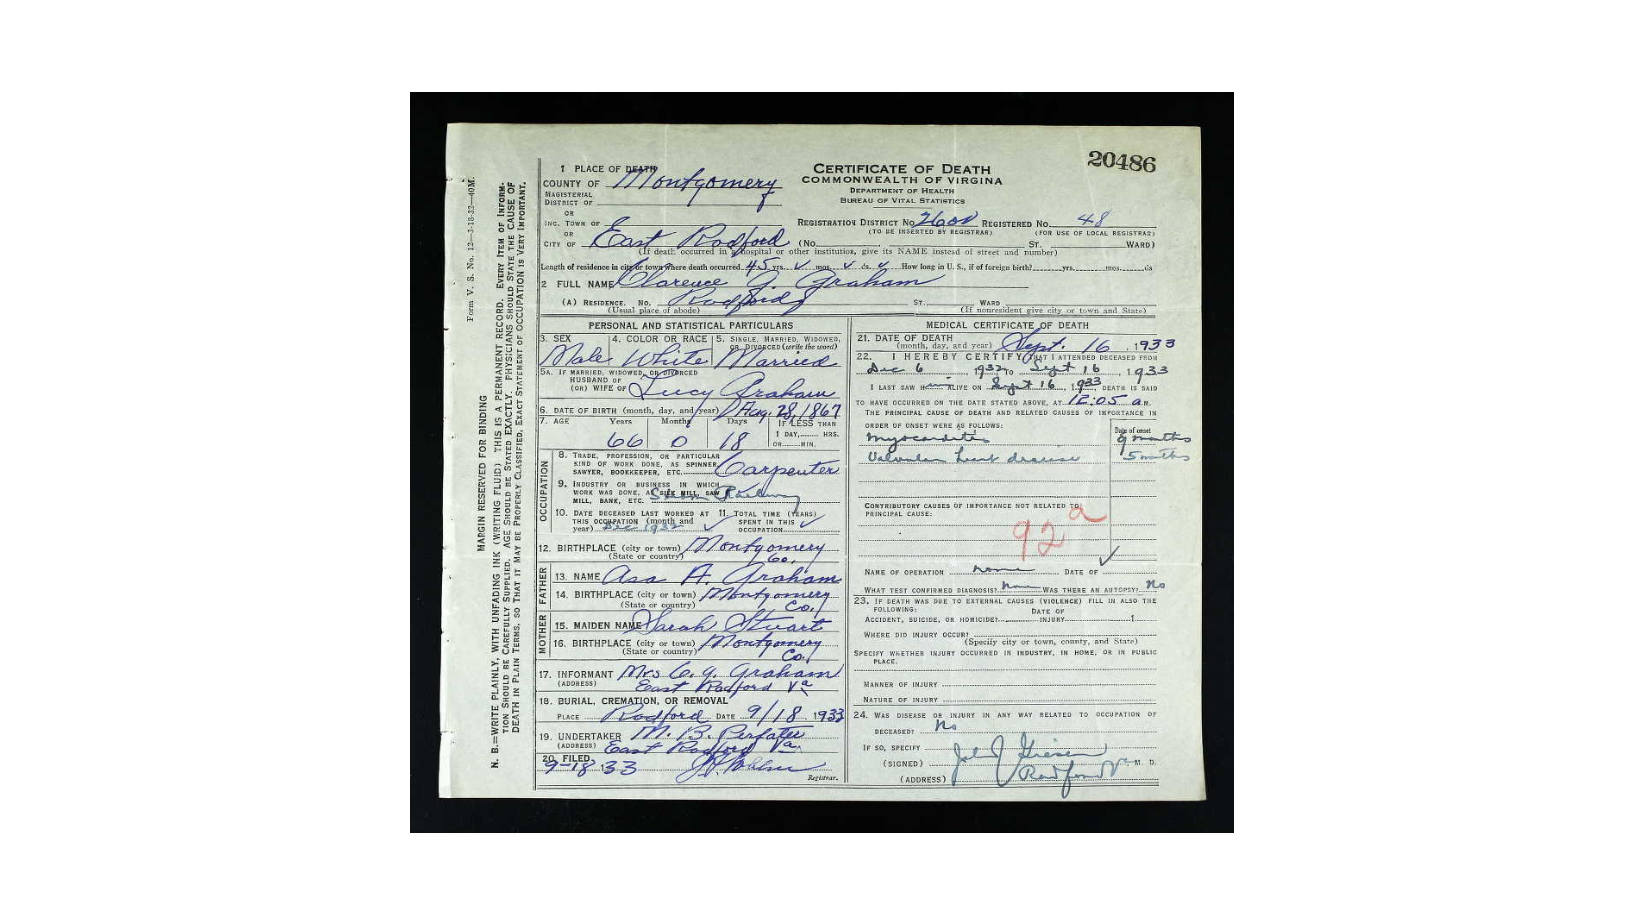 20486
1 PLACE OF DEATH
CERTIFICATE OF DEATH
COUNTY OF Montgomery
COMMONWEALTH OF VIRGINIA
MAGISTERIAL
DEPARTMENT OF HEALTH
DISTRICT OF
BUREAU OF VITAL STATISTICS
OR
INC. TOWN OF
REGISTRATION DISTRICT NO. REGISTERED NO. 48
OR
(TO BE INSERTED BY REGISTRAR) (FOR USE OF LOCAL REGISTRAR)
CITY OF East Radford (No. St. WARD)
(If death occurred in a hospital or other institution, give its NAME instead of street and number)
Length of residence in city or town where death occurred 45 yrs. mos. ds. How long in U. S., if of foreign birth? yrs. mos. ds
2 FULL NAME Clarence G. Graham
(A) RESIDENCE. No. Radford ST. WARD
(Usual place of abode) (If nonresident give city or town and State)
PERSONAL AND STATISTICAL PARTICULARS
3. SEX 4. COLOR OR RACE 5. SINGLE, MARRIED, WIDOWED,
OR DIVORCED (write the word)
Male White Married
5A. IF MARRIED, WIDOWED, OR DIVORCED
HUSBAND OF
(OR) WIFE OF Lucy Graham
6. DATE OF BIRTH (month, day, and year) Aug. 28, 1867
7. AGE Years Months Days IF LESS THAN
1 DAY, HRS.
66 0 18 OR MIN.
OCCUPATION
8. TRADE, PROFESSION, OR PARTICULAR
KIND OF WORK DONE, AS SPINNER,
SAWYER, BOOKKEEPER, ETC. Carpenter
9. INDUSTRY OR BUSINESS IN WHICH
WORK WAS DONE, AS SILK MILL, SAW
MILL, BANK, ETC. Railway
10. DATE DECEASED LAST WORKED AT 11. TOTAL TIME (YEARS)
THIS OCCUPATION (month and SPENT IN THIS
year) Dec 1932 OCCUPATION
12. BIRTHPLACE (city or town) Montgomery
(State or country) Co.
FATHER
13. NAME Asa A. Graham
14. BIRTHPLACE (city or town) Montgomery
(State or country) Co.
MOTHER
15. MAIDEN NAME Sarah Stuart
16. BIRTHPLACE (city or town) Montgomery
(State or country) Co.
17. INFORMANT Mrs C. G. Graham
(ADDRESS) East Radford Va
18. BURIAL, CREMATION, OR REMOVAL
PLACE Radford DATE 9/18, 1933
19. UNDERTAKER M. B.
(ADDRESS) East Radford Va.
20. FILED
9-18, 33
Registrar.
MEDICAL CERTIFICATE OF DEATH
21. DATE OF DEATH
(month, day, and year) Sept. 16, 1933
22. I HEREBY CERTIFY, THAT I ATTENDED DECEASED FROM
Dec 6, 1932 TO Sept 16, 1933
I LAST SAW HIM ALIVE ON Sept 16, 1933 DEATH IS SAID
TO HAVE OCCURRED ON THE DATE STATED ABOVE, AT 12:05 a M.
THE PRINCIPAL CAUSE OF DEATH AND RELATED CAUSES OF IMPORTANCE IN
ORDER OF ONSET WERE AS FOLLOWS: Date of onset
Myocarditis 9 months
Valvular heart disease 5 months
CONTRIBUTORY CAUSES OF IMPORTANCE NOT RELATED TO
PRINCIPAL CAUSE:
92a
NAME OF OPERATION none DATE OF
WHAT TEST CONFIRMED DIAGNOSIS? None WAS THERE AN AUTOPSY? No
23. IF DEATH WAS DUE TO EXTERNAL CAUSES (VIOLENCE) FILL IN ALSO THE
FOLLOWING: DATE OF
ACCIDENT, SUICIDE, OR HOMICIDE? INJURY 1
WHERE DID INJURY OCCUR?
(Specify city or town, county, and State)
SPECIFY WHETHER INJURY OCCURRED IN INDUSTRY, IN HOME, OR IN PUBLIC
PLACE.
MANNER OF INJURY
NATURE OF INJURY
24. WAS DISEASE OR INJURY IN ANY WAY RELATED TO OCCUPATION OF
DECEASED? No
IF SO, SPECIFY
(SIGNED) John J Giesen M. D.
(ADDRESS) Radford Va
Form V. S. No. 12—3-18-32—40M.
MARGIN RESERVED FOR BINDING
N. B.—WRITE PLAINLY, WITH UNFADING INK (WRITING FLUID) THIS IS A PERMANENT RECORD. EVERY ITEM OF INFORM-
TION SHOULD BE CAREFULLY SUPPLIED. AGE SHOULD BE STATED EXACTLY. PHYSICIANS SHOULD STATE THE CAUSE OF
DEATH IN PLAIN TERMS, SO THAT IT MAY BE PROPERLY CLASSIFIED. EXACT STATEMENT OF OCCUPATION IS VERY IMPORTANT.